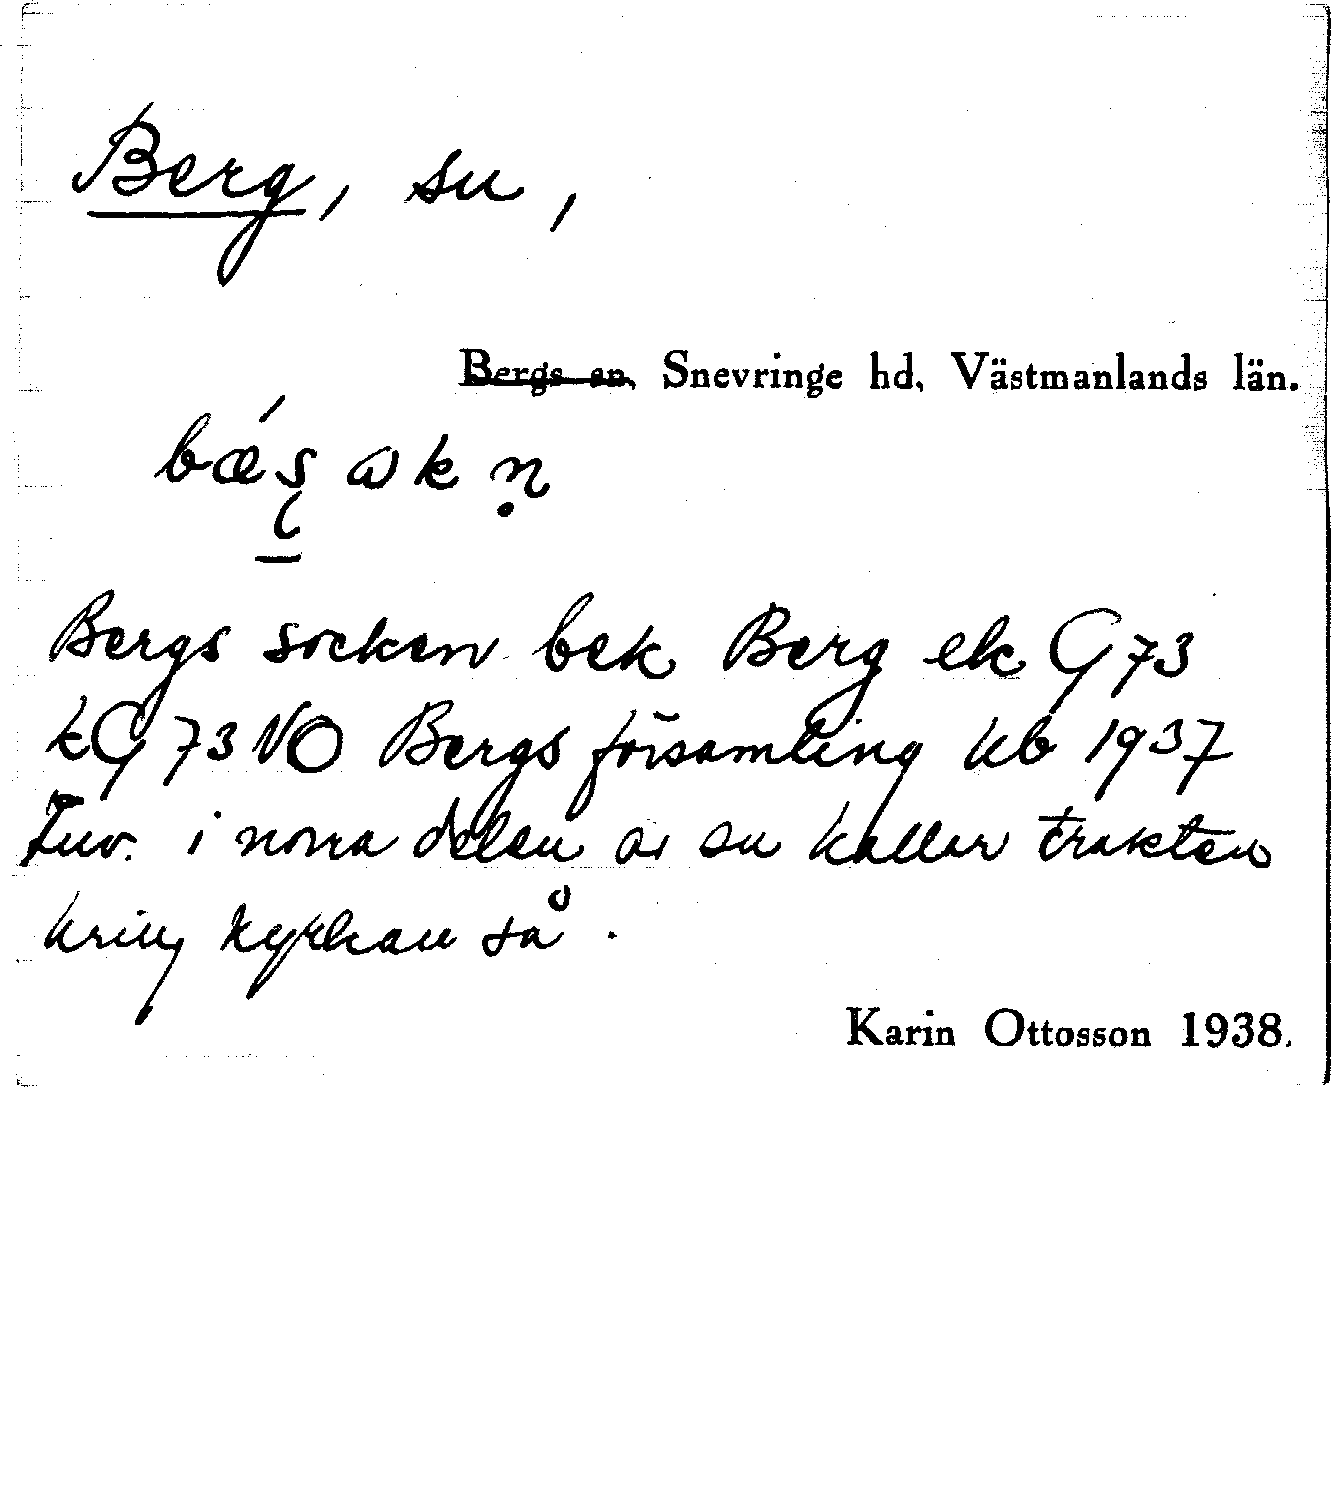 Berg, sn,
Bergs sn, Snevringe hd, Västmanlands län.
Bergs socken bek Berg ek G 73
kG 73 NO Bergs församling kb 1937
Inv. i norra delen av sn kallar trakten
kring kyrkan så.
Karin Ottosson 1938.